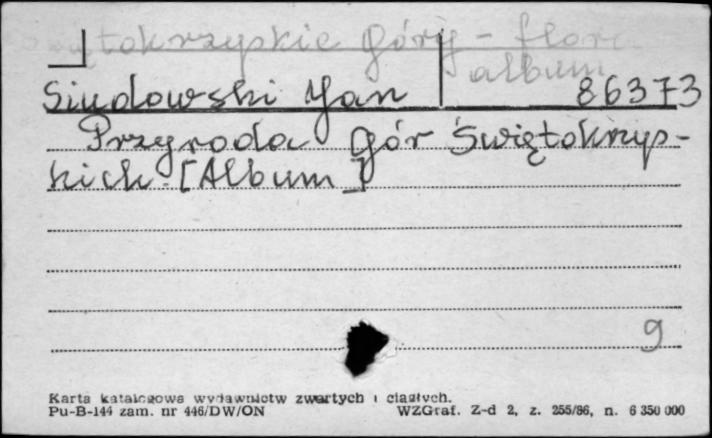 Świętokrzyskie Góry - flora
album
Siudowski Jan 86373
Przyroda Gór Świętokrzys-
kich. [Album]
9
Karta katalogowa wydawnictw zwartych i ciągłych.
Pu-B-144 zam. nr 446/DW/ON WZGraf. Z-d 2, z. 255/86, n. 6 350 000